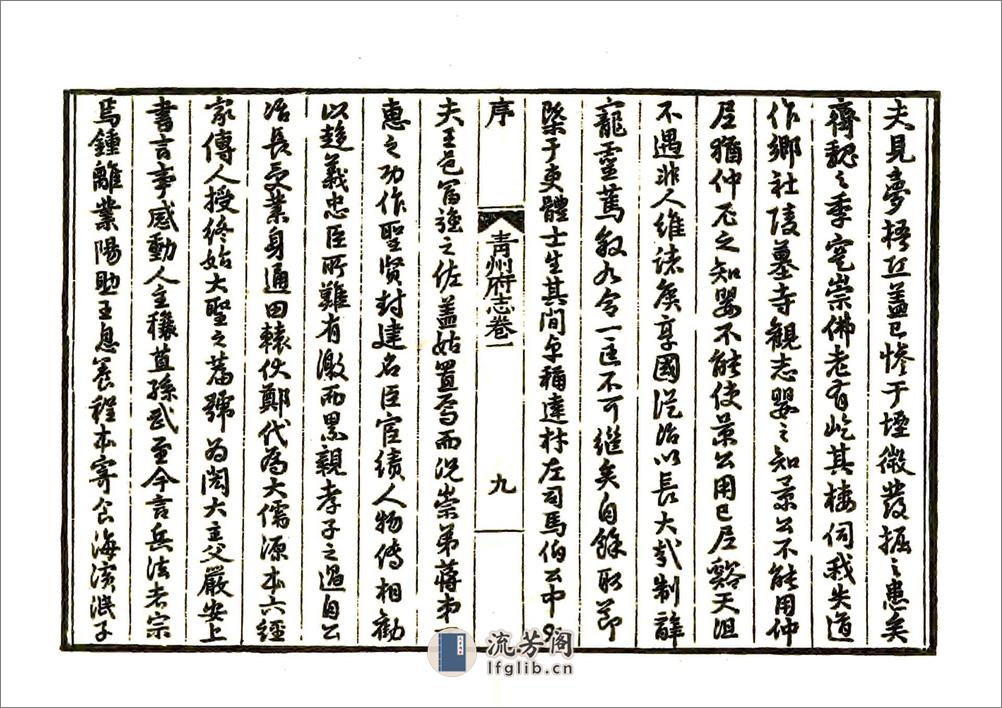 夫見夢捂丘盖已慘于堙微發掘之患矣
齊魏之季寔崇佛老有屹其樓伺我失道
作鄉社陵墓寺觀志嬰之知景公不能用仲
尼猶仲尼之知嬰不能使景公用已尼谿天沮
不遇非人維諸矦享國從治以長大制辭
寵靈蔫敘九令一匡不可繼矣自餘取節
槩于吏體士生其間卓稱達材左司馬伯公中
序
青州府志卷一
九
夫王邑冨強之佐盖姑置焉而況崇弟蔣
惠之功作聖賢封建名臣宦績人物傳相勸
以趍義忠臣所難有激而累親孝子之過自公
冶長受業身通田轅伏鄭代為大儒源本六經
家傳人授終始大聖之蕃號為閎大主父嚴安上
書言事感動人主穰苴孫武至今言兵法者宗
焉鍾離業陽助王息養程本寄食海濱泯子
流芳阁
lfglib.cn